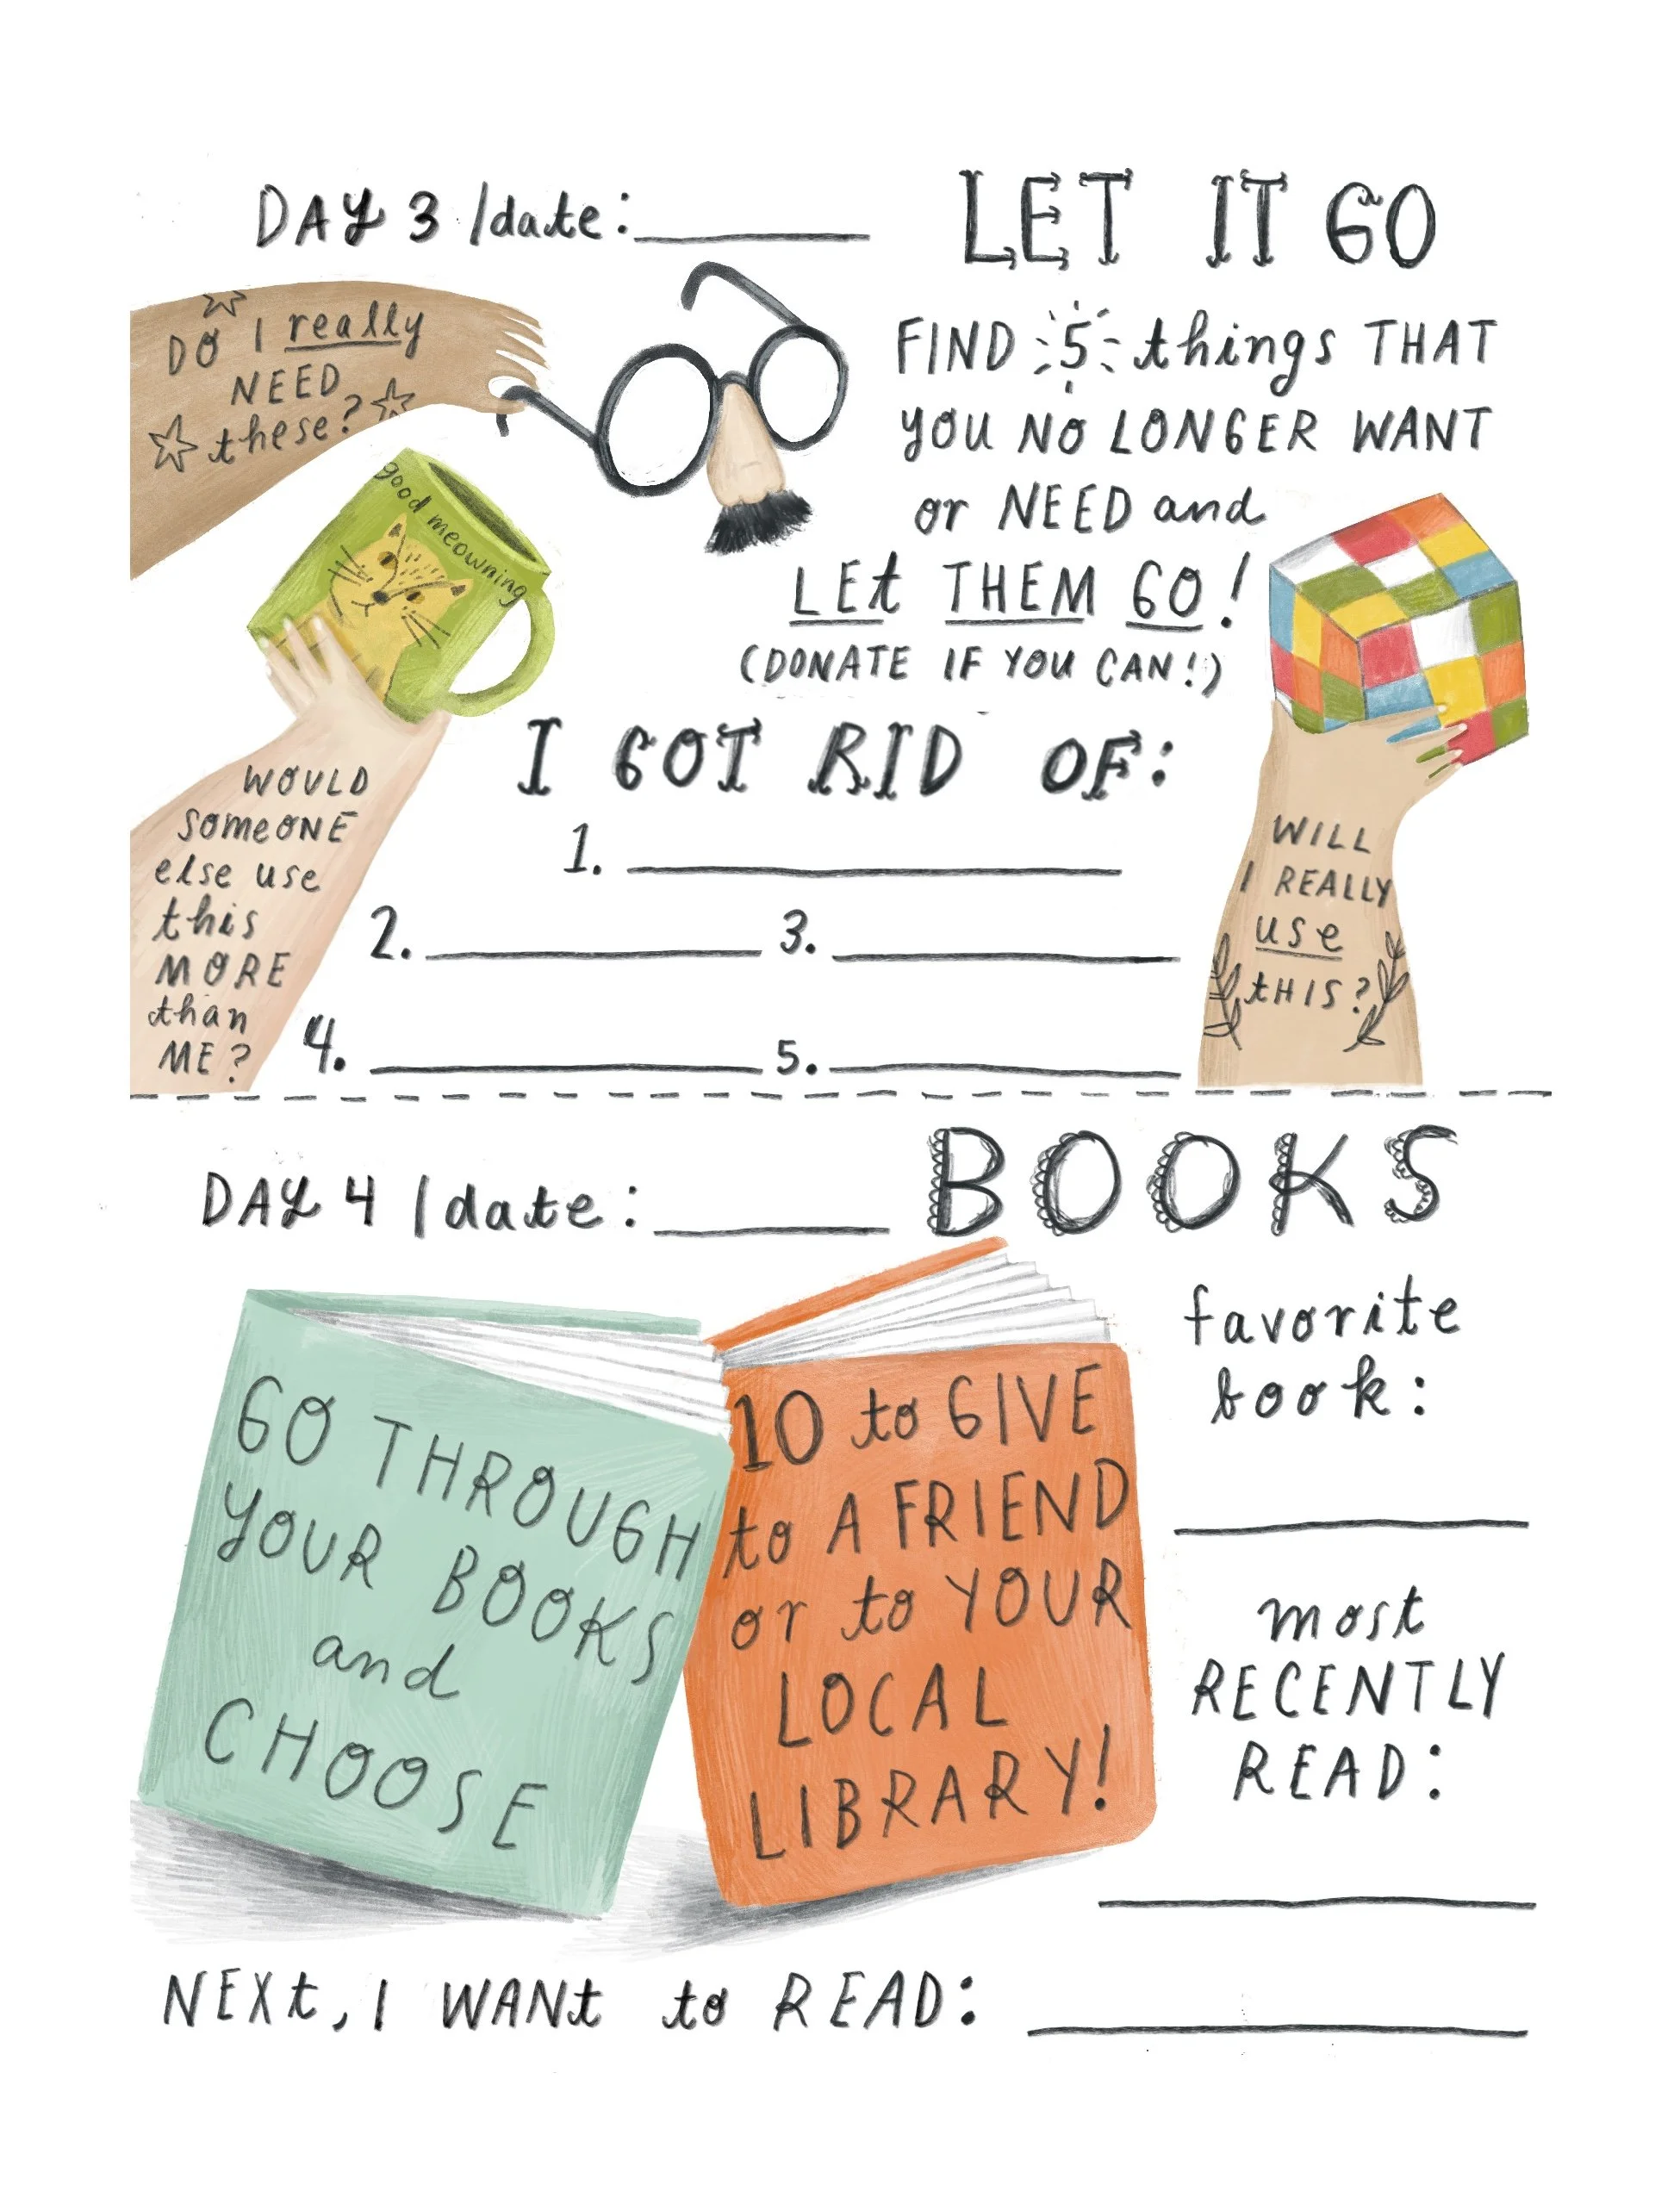 DAY 3 / date:
LET IT GO
DO I really
NEED
these?
good meowning
FIND 5 things THAT
YOU NO LONGER WANT
or NEED and
LEt THEM GO!
(DONATE IF YOU CAN!)
I GOT RID OF:
1.
2.
3.
4.
5.
WOULD
SomeONE
else use
this
MORE
than
ME?
WILL
I REALLY
use
tHIS?
DAY 4 / date:
BOOKS
GO THROUGH
YOUR BOOKS
and
CHOOSE
10 to GIVE
to A FRIEND
or to YOUR
LOCAL
LIBRARY!
favorite
book:
most
RECENTLY
READ:
NEXt, I WANt to READ: